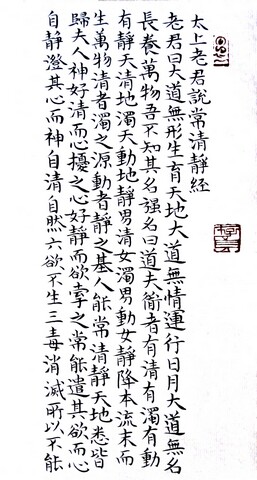 太上老君說常清靜經
老君曰大道無形生育天地大道無情運行日月大道無名
長養萬物吾不知其名强名曰道夫衜者有清有濁有動
有靜天清地濁天動地靜男清女濁男動女靜降本流末而
生萬物清者濁之源動者靜之基人能常清靜天地悉皆
歸夫人神好清而心擾之心好靜而欲牽之常能遣其欲而心
自靜澄其心而神自清自然六欲不生三毒消滅所以不能